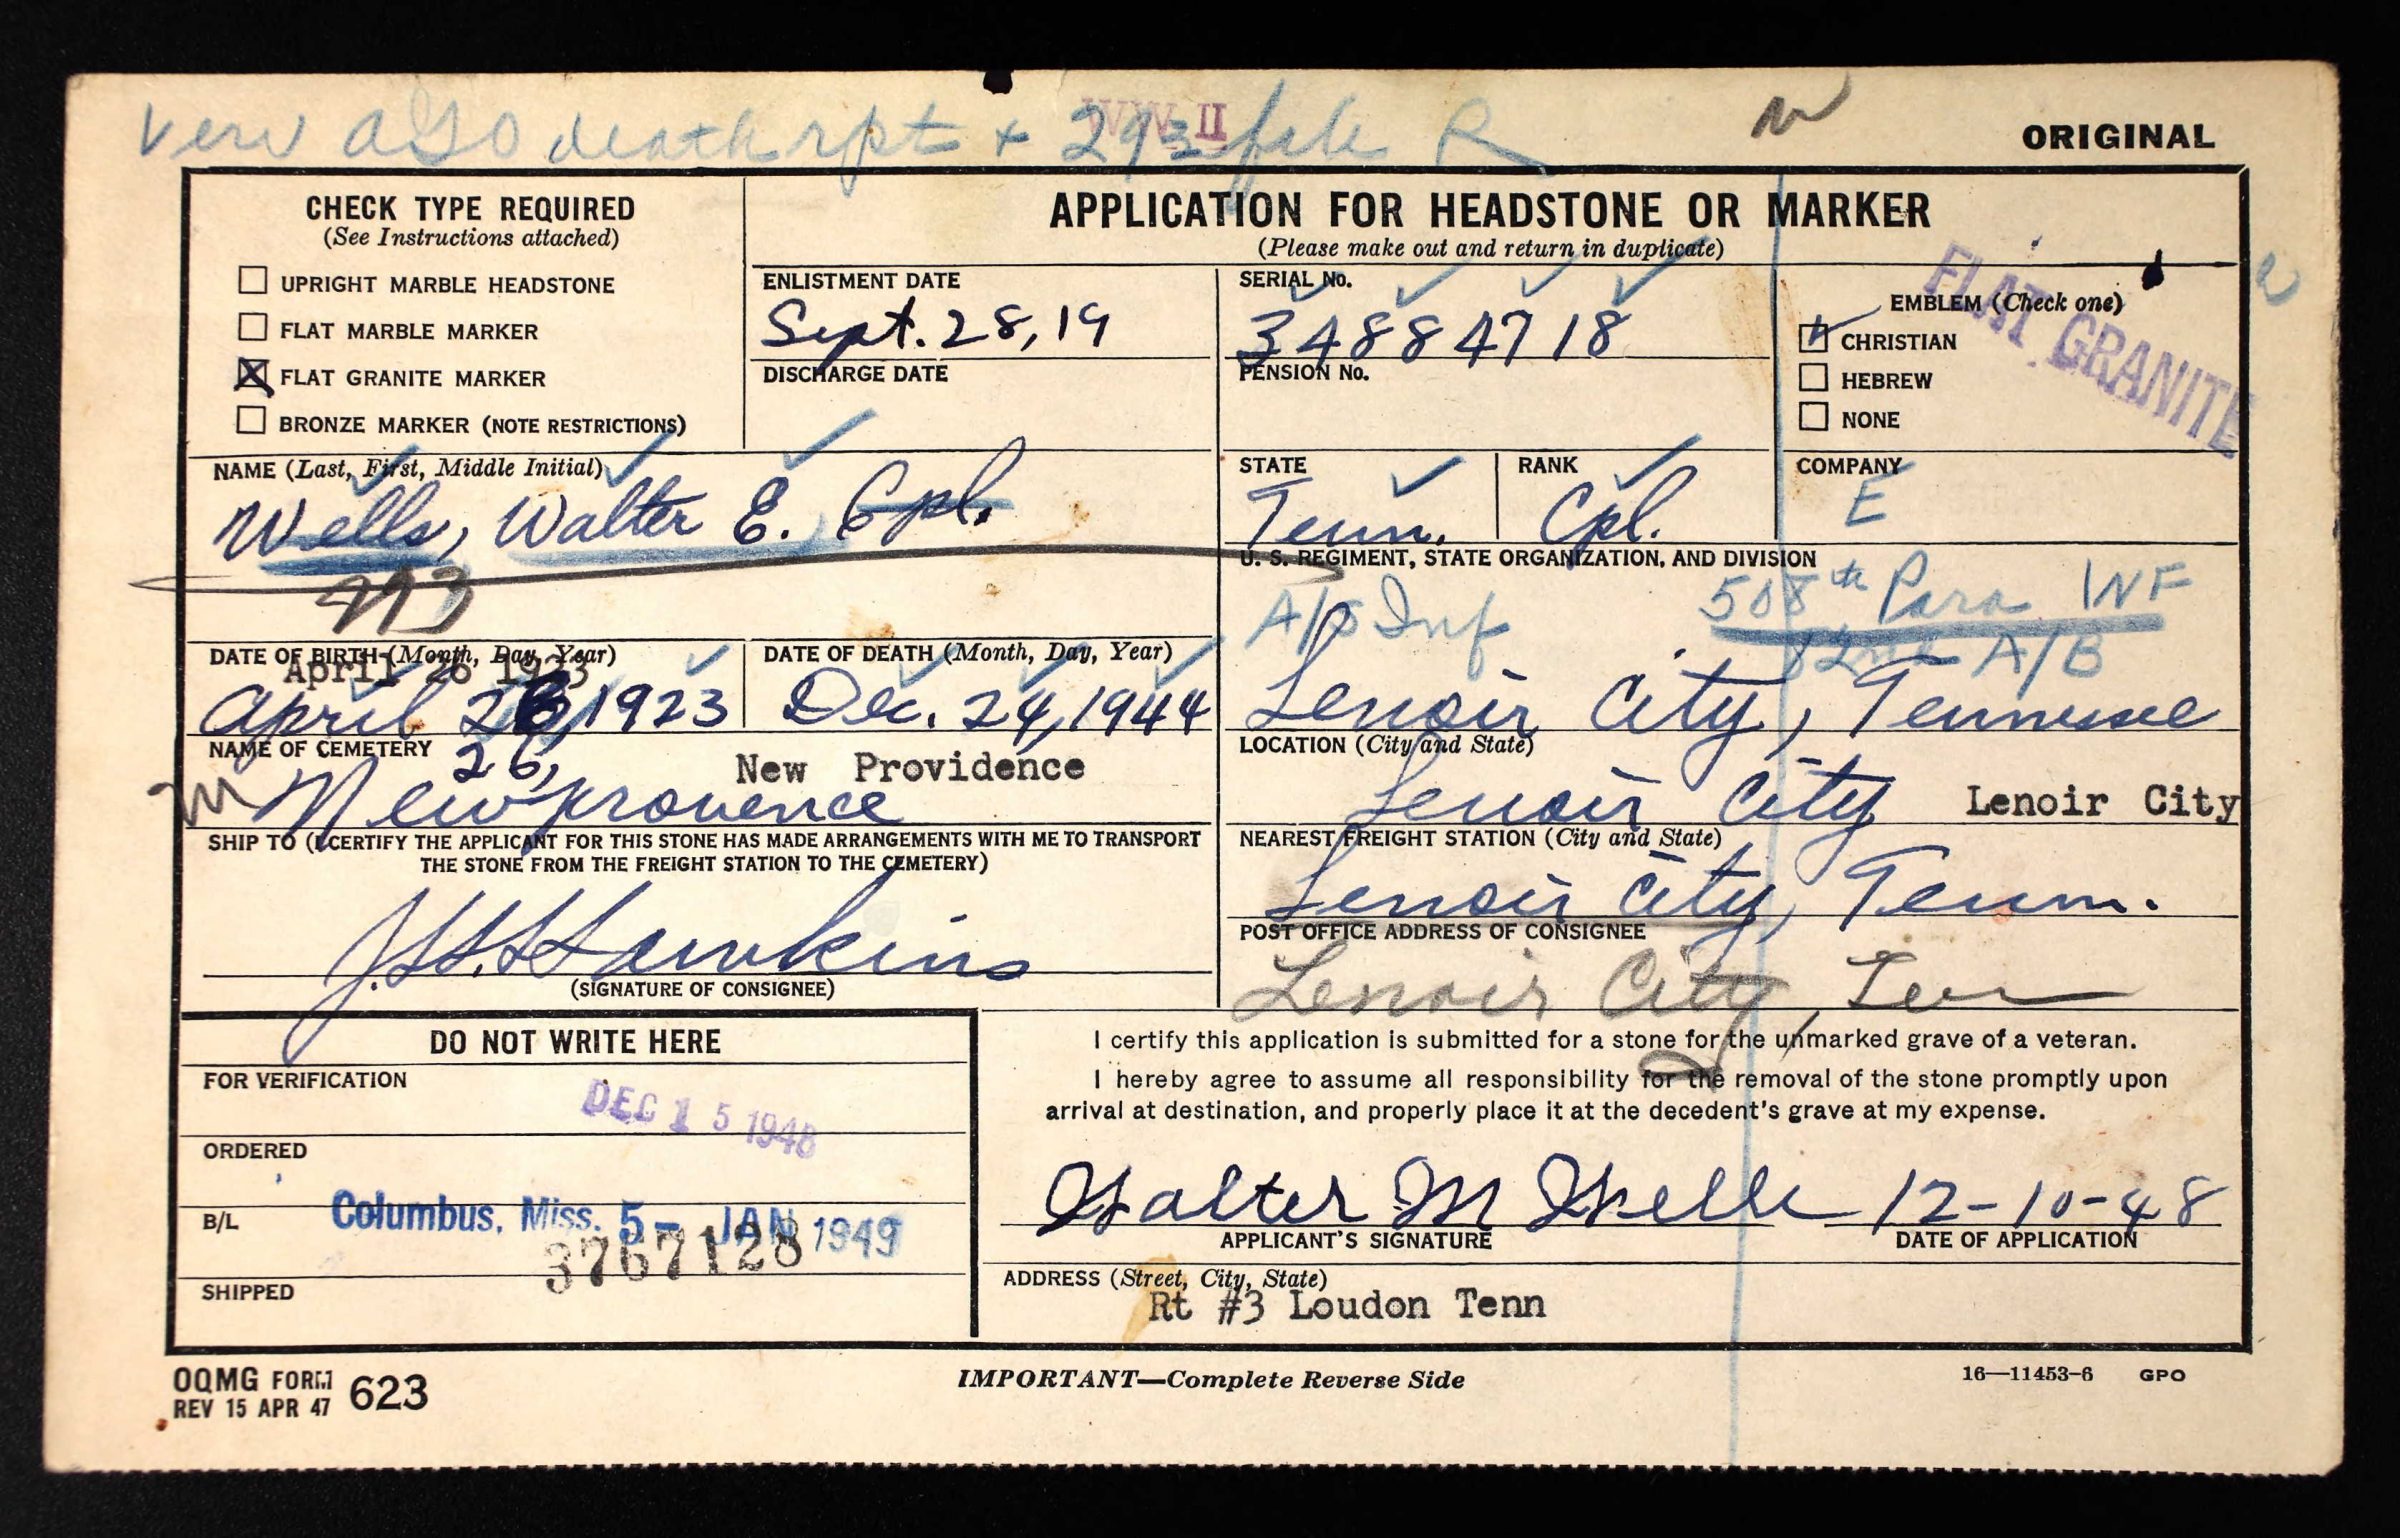 Veri AGO death rpt + 293 file R
WW II
ORIGINAL
CHECK TYPE REQUIRED
(See Instructions attached)
UPRIGHT MARBLE HEADSTONE
FLAT MARBLE MARKER
FLAT GRANITE MARKER
BRONZE MARKER (NOTE RESTRICTIONS)
APPLICATION FOR HEADSTONE OR MARKER
(Please make out and return in duplicate)
ENLISTMENT DATE
Sept. 28, 19
DISCHARGE DATE
SERIAL No.
34884718
PENSION No.
EMBLEM (Check one)
CHRISTIAN
HEBREW
NONE
FLAT GRANITE
NAME (Last, First, Middle Initial)
Wells, Walter E. Cpl.
293
STATE
Tenn.
RANK
Cpl.
COMPANY
E
U. S. REGIMENT, STATE ORGANIZATION, AND DIVISION
A/B Inf 508th Para INF
82nd A/B
Lenoir City, Tennessee
DATE OF BIRTH (Month, Day, Year)
April 26 1923
April 26, 1923
26,
DATE OF DEATH (Month, Day, Year)
Dec. 24, 1944
NAME OF CEMETERY
New Providence
Newprovence
LOCATION (City and State)
Lenoir City Lenoir City
SHIP TO (I CERTIFY THE APPLICANT FOR THIS STONE HAS MADE ARRANGEMENTS WITH ME TO TRANSPORT
THE STONE FROM THE FREIGHT STATION TO THE CEMETERY)
Hawkins
(SIGNATURE OF CONSIGNEE)
NEAREST FREIGHT STATION (City and State)
Lenoir City, Tenn.
POST OFFICE ADDRESS OF CONSIGNEE
Lenoir City, Ten
DO NOT WRITE HERE
FOR VERIFICATION
DEC 15 1948
ORDERED
B/L
Columbus, Miss. 5- JAN 1949
3767128
SHIPPED
I certify this application is submitted for a stone for the unmarked grave of a veteran.
I hereby agree to assume all responsibility for the removal of the stone promptly upon
arrival at destination, and properly place it at the decedent's grave at my expense.
Walter M Wells 12-10-48
APPLICANT'S SIGNATURE
DATE OF APPLICATION
ADDRESS (Street, City, State)
Rt #3 Loudon Tenn
OQMG FORM 623
REV 15 APR 47
IMPORTANT—Complete Reverse Side
16—11453-6 GPO